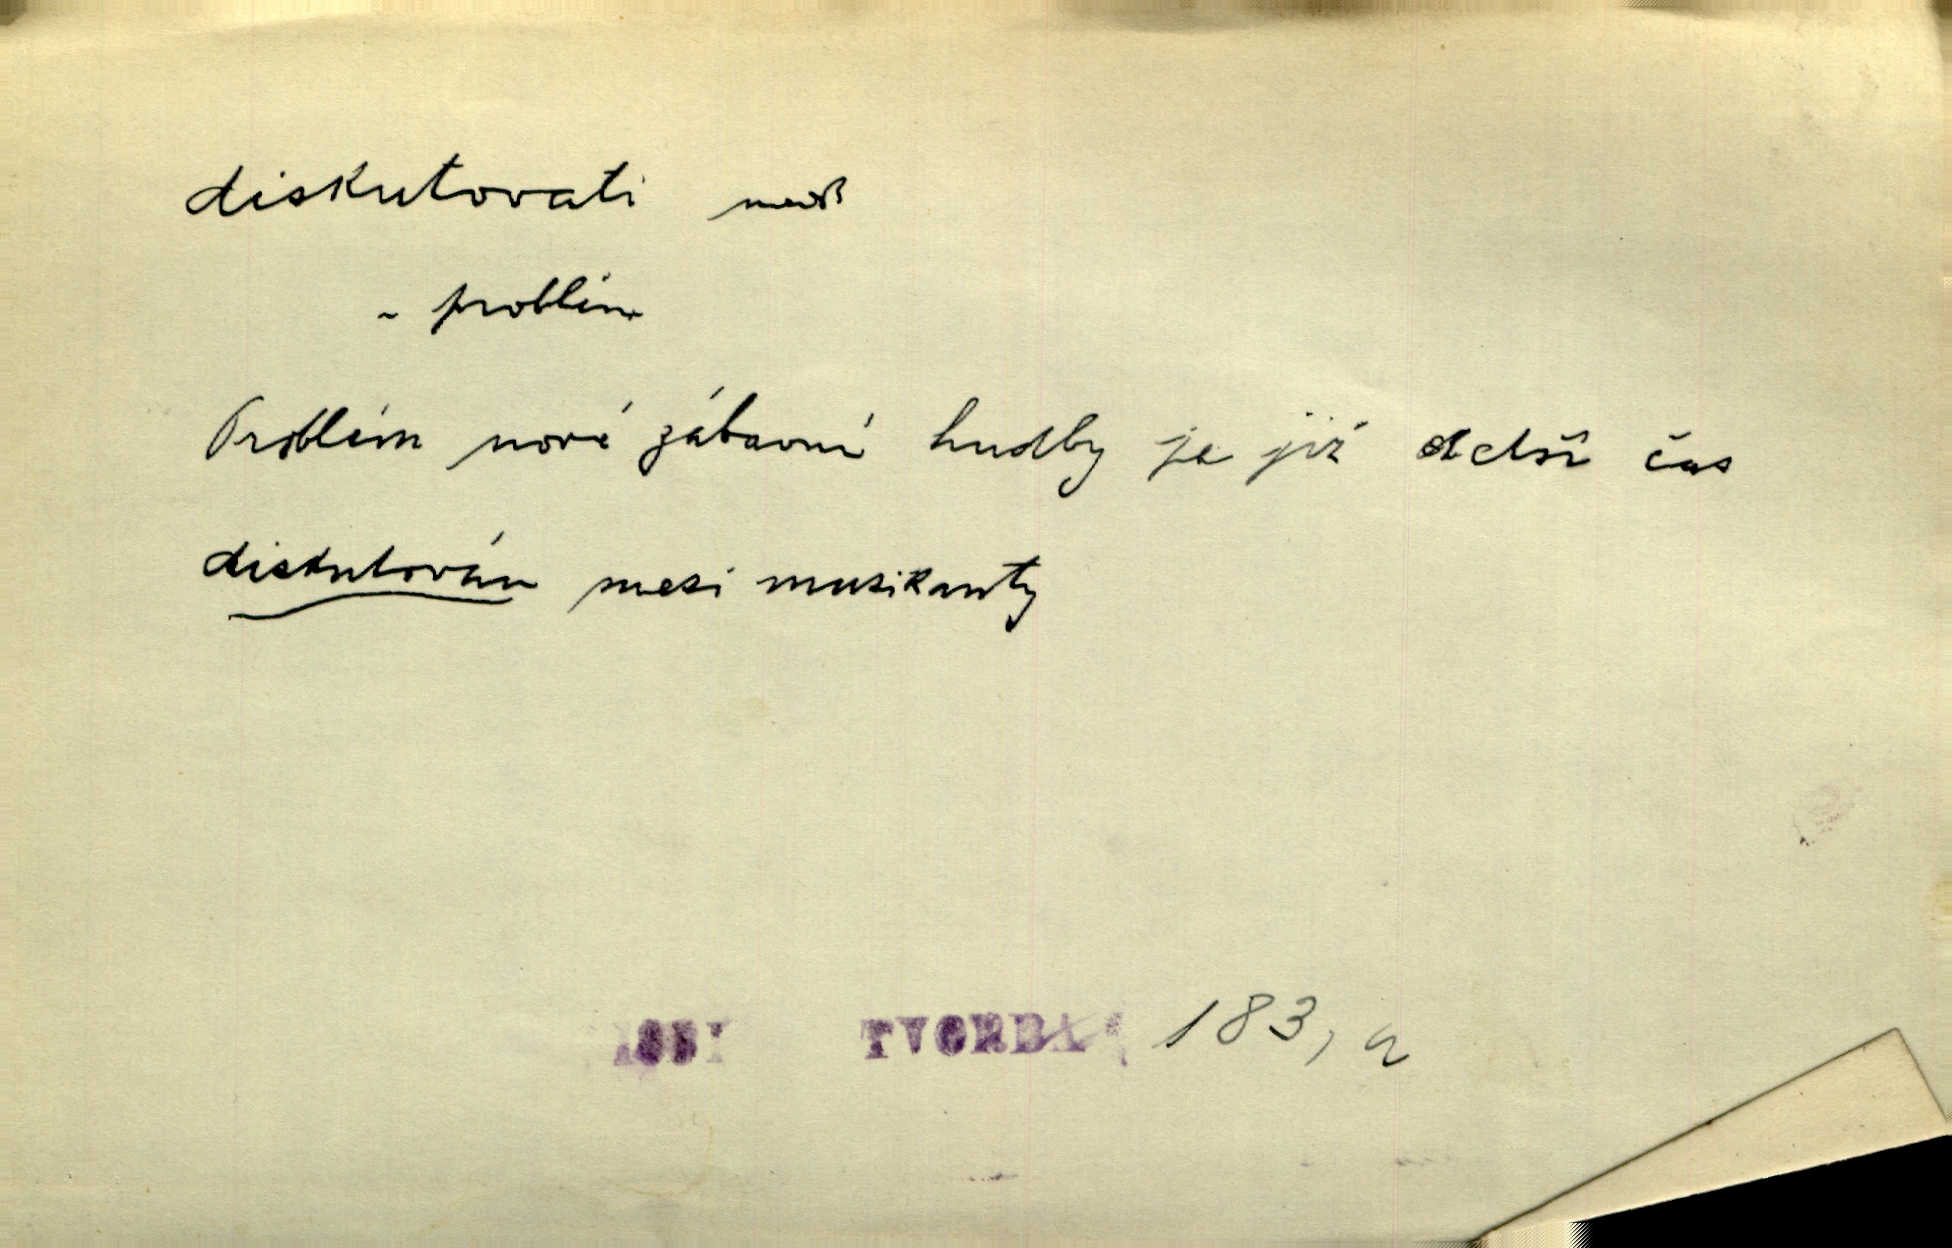 diskutovati ned.
~ problém
Problém nové zábavní hudby je již delší čas
diskutován mezi musikanty
TVORBA 183, a